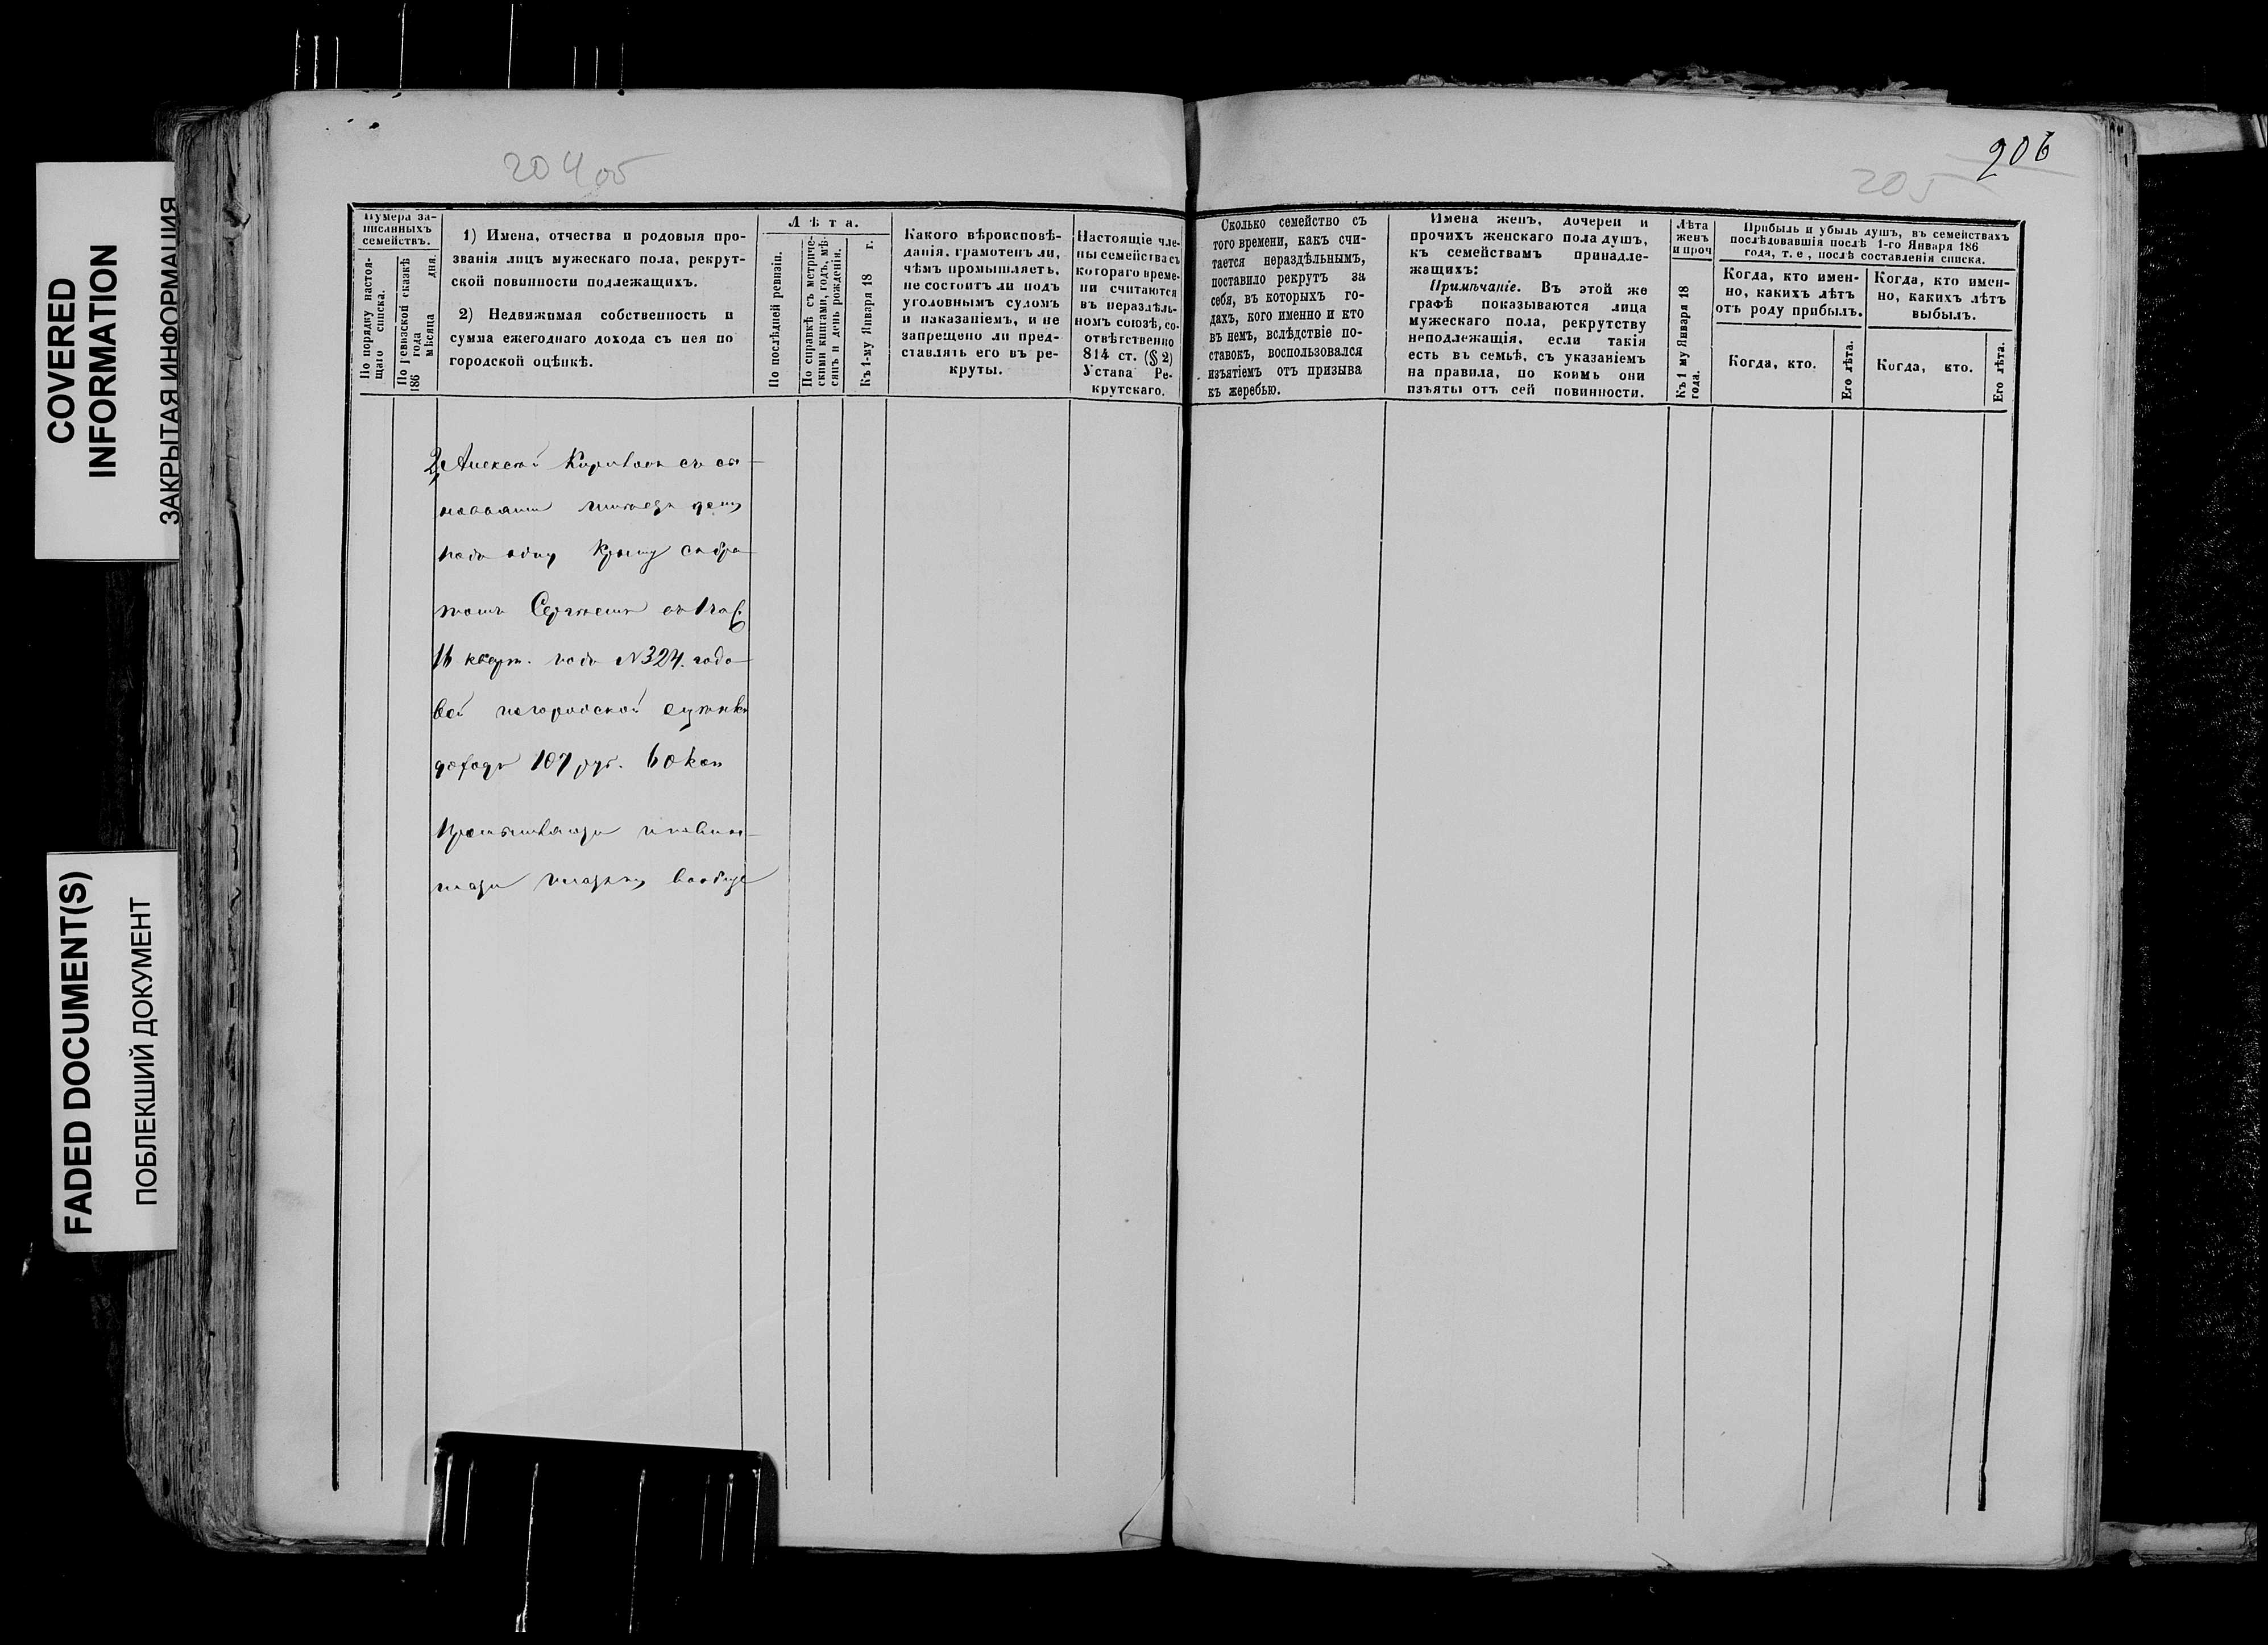 COVERED
INFORMATION
ЗАКРЫТАЯ ИНФОРМАЦИЯ
FADED DOCUMENT(S)
ПОБЛЕКШИЙ ДОКУМЕНТ
204 об
206
205
Нумера за-
писанныхъ
семействъ.
По порядку настоя-
щаго списка.
По ревизской сказкѣ
186 года
мѣсяца дня.
1) Имена, отчества и родовыя про-
званія лицъ мужескаго пола, рекрут-
ской повинности подлежащихъ.
2) Недвижимая собственность и
сумма ежегоднаго дохода съ нея по
городской оцѣнкѣ.
Лѣта.
По послѣдней ревизіи.
По справкѣ съ метриче-
скими книгами, годъ, мѣ-
сяцъ и день рожденія.
Къ 1-му Января 18 г.
Какого вѣроисповѣ-
данія, грамотенъ ли,
чѣмъ промышляетъ,
не состоитъ ли подъ
уголовнымъ судомъ
и наказаніемъ, и не
запрещено ли пред-
ставлять его въ ре-
круты.
Настоящіе чле-
ны семейства съ
котораго време-
ни считаются
въ нераздѣль-
номъ союзѣ, со-
отвѣтственно
814 ст. (§ 2)
Устава Ре-
крутскаго.
Сколько семейство съ
того времени, какъ счи-
тается нераздѣльнымъ,
поставило рекрутъ за
себя, въ которыхъ го-
дахъ, кого именно и кто
въ немъ, вслѣдствіе по-
ставокъ, воспользовался
изъятіемъ отъ призыва
къ жеребью.
Имена женъ, дочерей и
прочихъ женскаго пола душъ,
къ семействамъ принадле-
жащихъ:
Примѣчаніе. Въ этой же
графѣ показываются лица
мужескаго пола, рекрутству
неподлежащія, если такія
есть въ семьѣ, съ указаніемъ
на правила, по коимъ они
изъяты отъ сей повинности.
Лѣта
женъ
и проч
Къ 1 му Января 18
года.
Прибыль и убыль душъ, въ семействахъ
послѣдовавшія послѣ 1-го Января 186
года, т. е, послѣ составленія списка.
Когда, кто имен-
но, какихъ лѣтъ
отъ роду прибылъ.
Когда, кто имен-
но, какихъ лѣтъ
выбылъ.
Когда, кто.
Его лѣта.
Когда, кто.
Его лѣта.
2, Алексей съ сы-
новьями
подъ одну крышу съ бра-
томъ Сергѣемъ въ 1 час.
16 кварт. подъ №324. годо-
вой по городской оцѣнкѣ
доходъ 107 руб. 60 коп
вообще